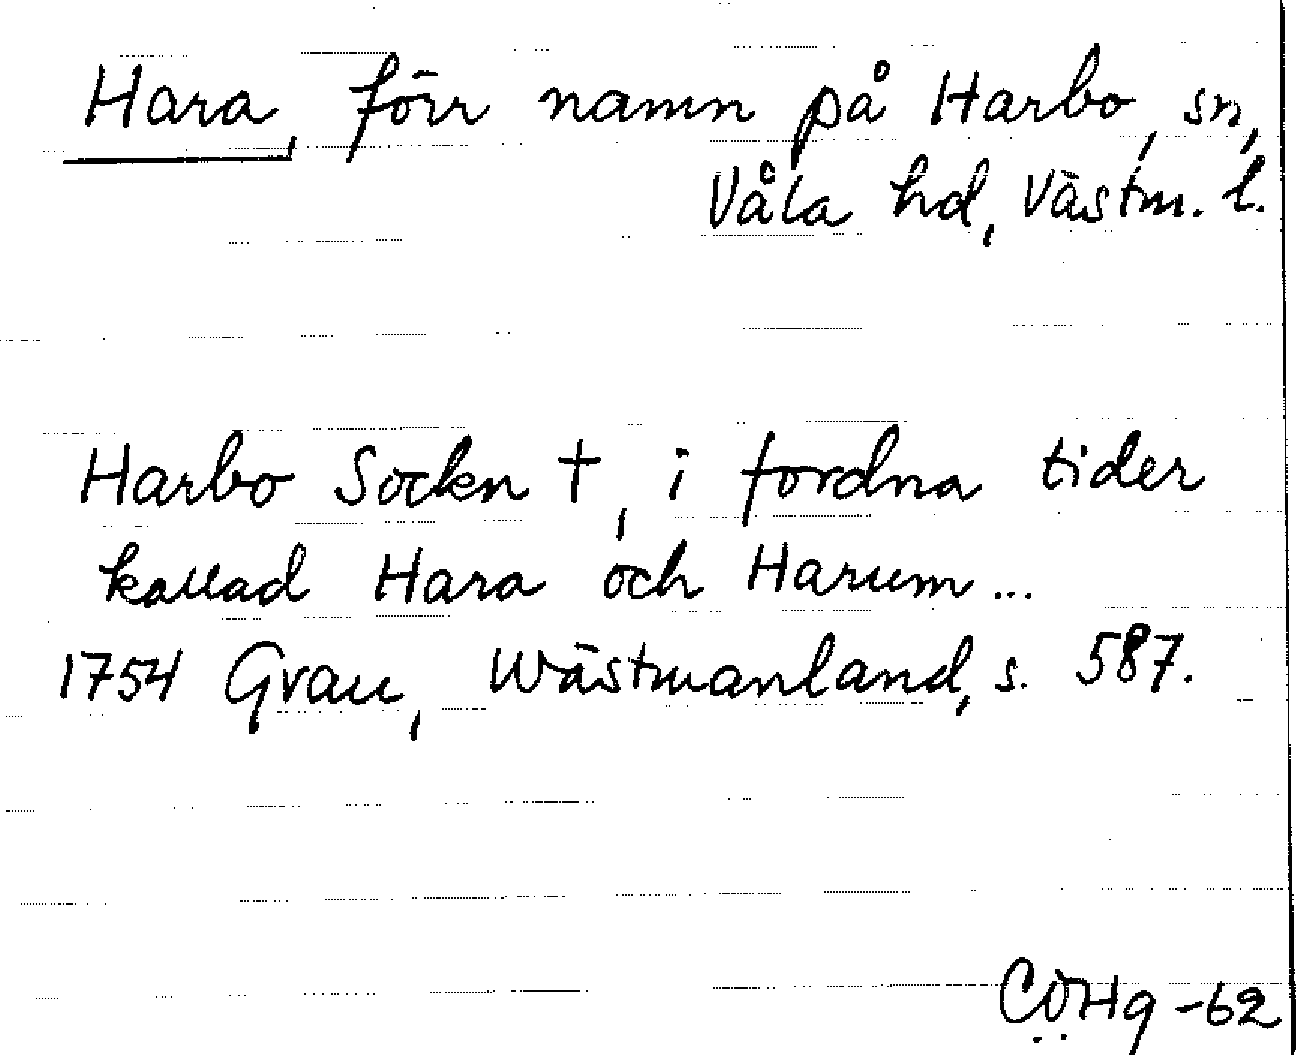 Hara, förr namn på Harbo, sn,
Våla hd, Västm. l.
Harbo Sockn †, i fordna tider
kallad Hara och Harum...
1754 Grau, Wästmanland, s. 587.
CÖHg -62